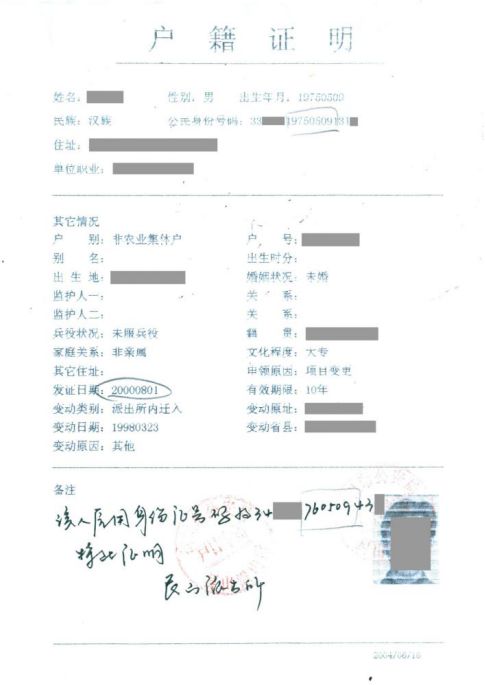 户籍证明
姓名： 性别：男 出生年月：19750509
民族：汉族 公民身份号码：33 1975050931
住址：
单位职业：
其它情况
户 别：非农业集体户 户 号：
别 名： 出生时分：
出生地： 婚姻状况：未婚
监护人一： 关 系：
监护人二： 关 系：
兵役状况：未服兵役 籍 贯：
家庭关系：非亲属 文化程度：大专
其它住址： 申领原因：项目变更
发证日期：20000801 有效期限：10年
变动类别：派出所内迁入 变动原址：
变动日期：19980323 变动省县：
变动原因：其他
备注
该人原用身份证号码为34 76050943
特此证明
派出所
2004/06/16